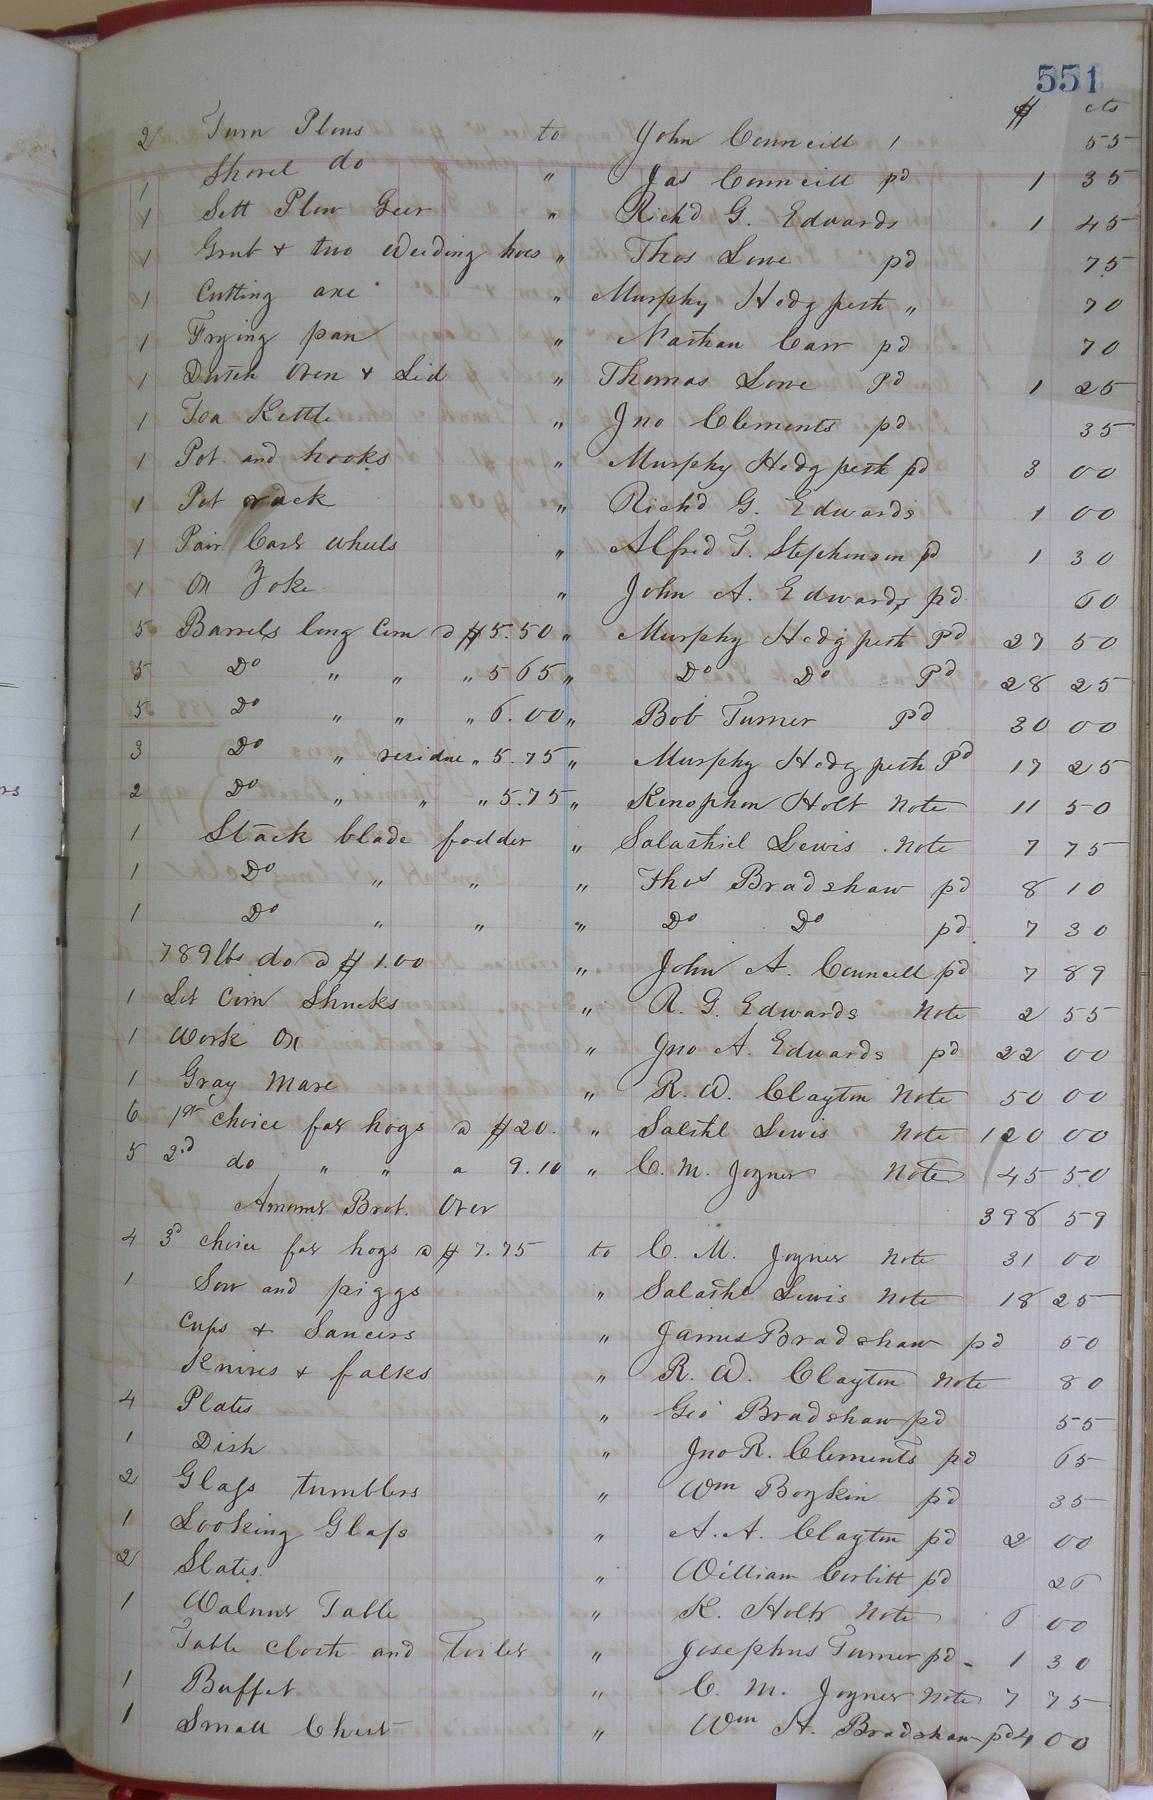 551
$ cts
2 Turn Plows to John Councill 1 55
1 Shovel do " Jas Councill pd 1 35
1 Sett Plow Geer " Richd G. Edwards 1 45
1 Grub & two Weeding hoes " Thos Lowe pd 75
1 Cutting axe " Murphy Hedgpeth " 70
1 Frying pan " Nathan Carr pd 70
1 Dutch Oven & Lid " Thomas Lowe Pd 1 25
1 Tea Kettle " Jno Clements pd 35
1 Pot and hooks " Murphy Hedgpeth pd 3 00
1 Pot rack " Richd G. Edwards 1 00
1 Pair Cart Wheels " Alfred T. Stephenson pd 1 30
1 Ox Yoke " John A. Edwards pd 60
5 Barrels long Corn a $5.50 " Murphy Hedgpeth Pd 27 50
5 Do " " " 5 65 " Do Do Pd 28 25
5 Do " " " 6.00 " Bob Turner Pd 30 00
3 Do " residue " 5.75 " Murphy Hedgpeth Pd 17 25
2 Do " " " 5.75 " Kenophon Holt Note 11 50
1 Stack blade fodder " Salathiel Lewis Note 7 75
1 Do " " " Thos Bradshaw pd 8 10
1 Do " " " Do Do pd 7 30
789 lbs do a $1.00 " John A. Councill pd 7 89
1 Lot Corn Shucks " R. G. Edwards Note 2 55
1 Work Ox " Jno A. Edwards pd 22 00
1 Gray Mare " R. W. Clayton Note 50 00
6 1st choice fat hogs a $20. " Salthl Lewis Note 120 00
5 2d do " " a 9.10 " C. M. Joyner Note 45 50
Amount Brot. Over 398 59
4 3d choice fat hogs a $7.75 to C. M. Joyner Note 31 00
1 Sow and piggs " Salathl Lewis Note 18 25
Cups & Saucers " James Bradshaw pd 50
Knives & folks " R. W. Clayton Note 80
4 Plates " Geo Bradshaw pd 55
1 Dish " Jno R. Clements pd 65
2 Glass tumblers " Wm Boykin pd 35
1 Looking Glass " A. A. Clayton pd 2 00
2 Slates " William Corbitt pd 26
1 Walnut Table " K. Holt Note 6 00
Table cloth and Toilet " Josephus Turner pd 1 30
1 Buffet " C. M. Joyner Note 7 75
1 Small Chest " Wm H. Bradshaw pd 4 00